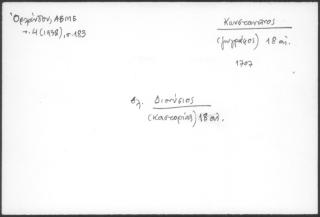 Ὀρλάνδον, ΑΒΜΕ
τ. 4 (1938), σ. 183
Κωνσταντῖνος
(ζωγράφος) 18 αἰ.
1707
βλ. Διονύσιος
(Καστοριᾶ) 18 αἰ.